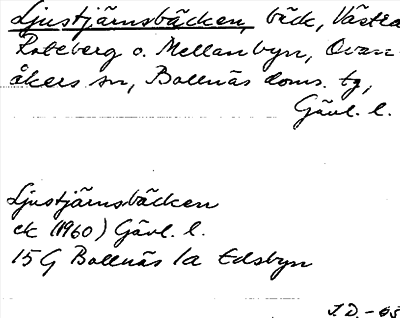 Ljustjärnsbäcken, bäck, Västra
Roteberg o. Mellanbyn, Ovan-
åkers sn, Bollnäs doms. tg,
Gävl. l.
Ljustjärnsbäcken
ek (1960) Gävl. l.
15 G Bollnäs 1a Edsbyn
J.D. -65